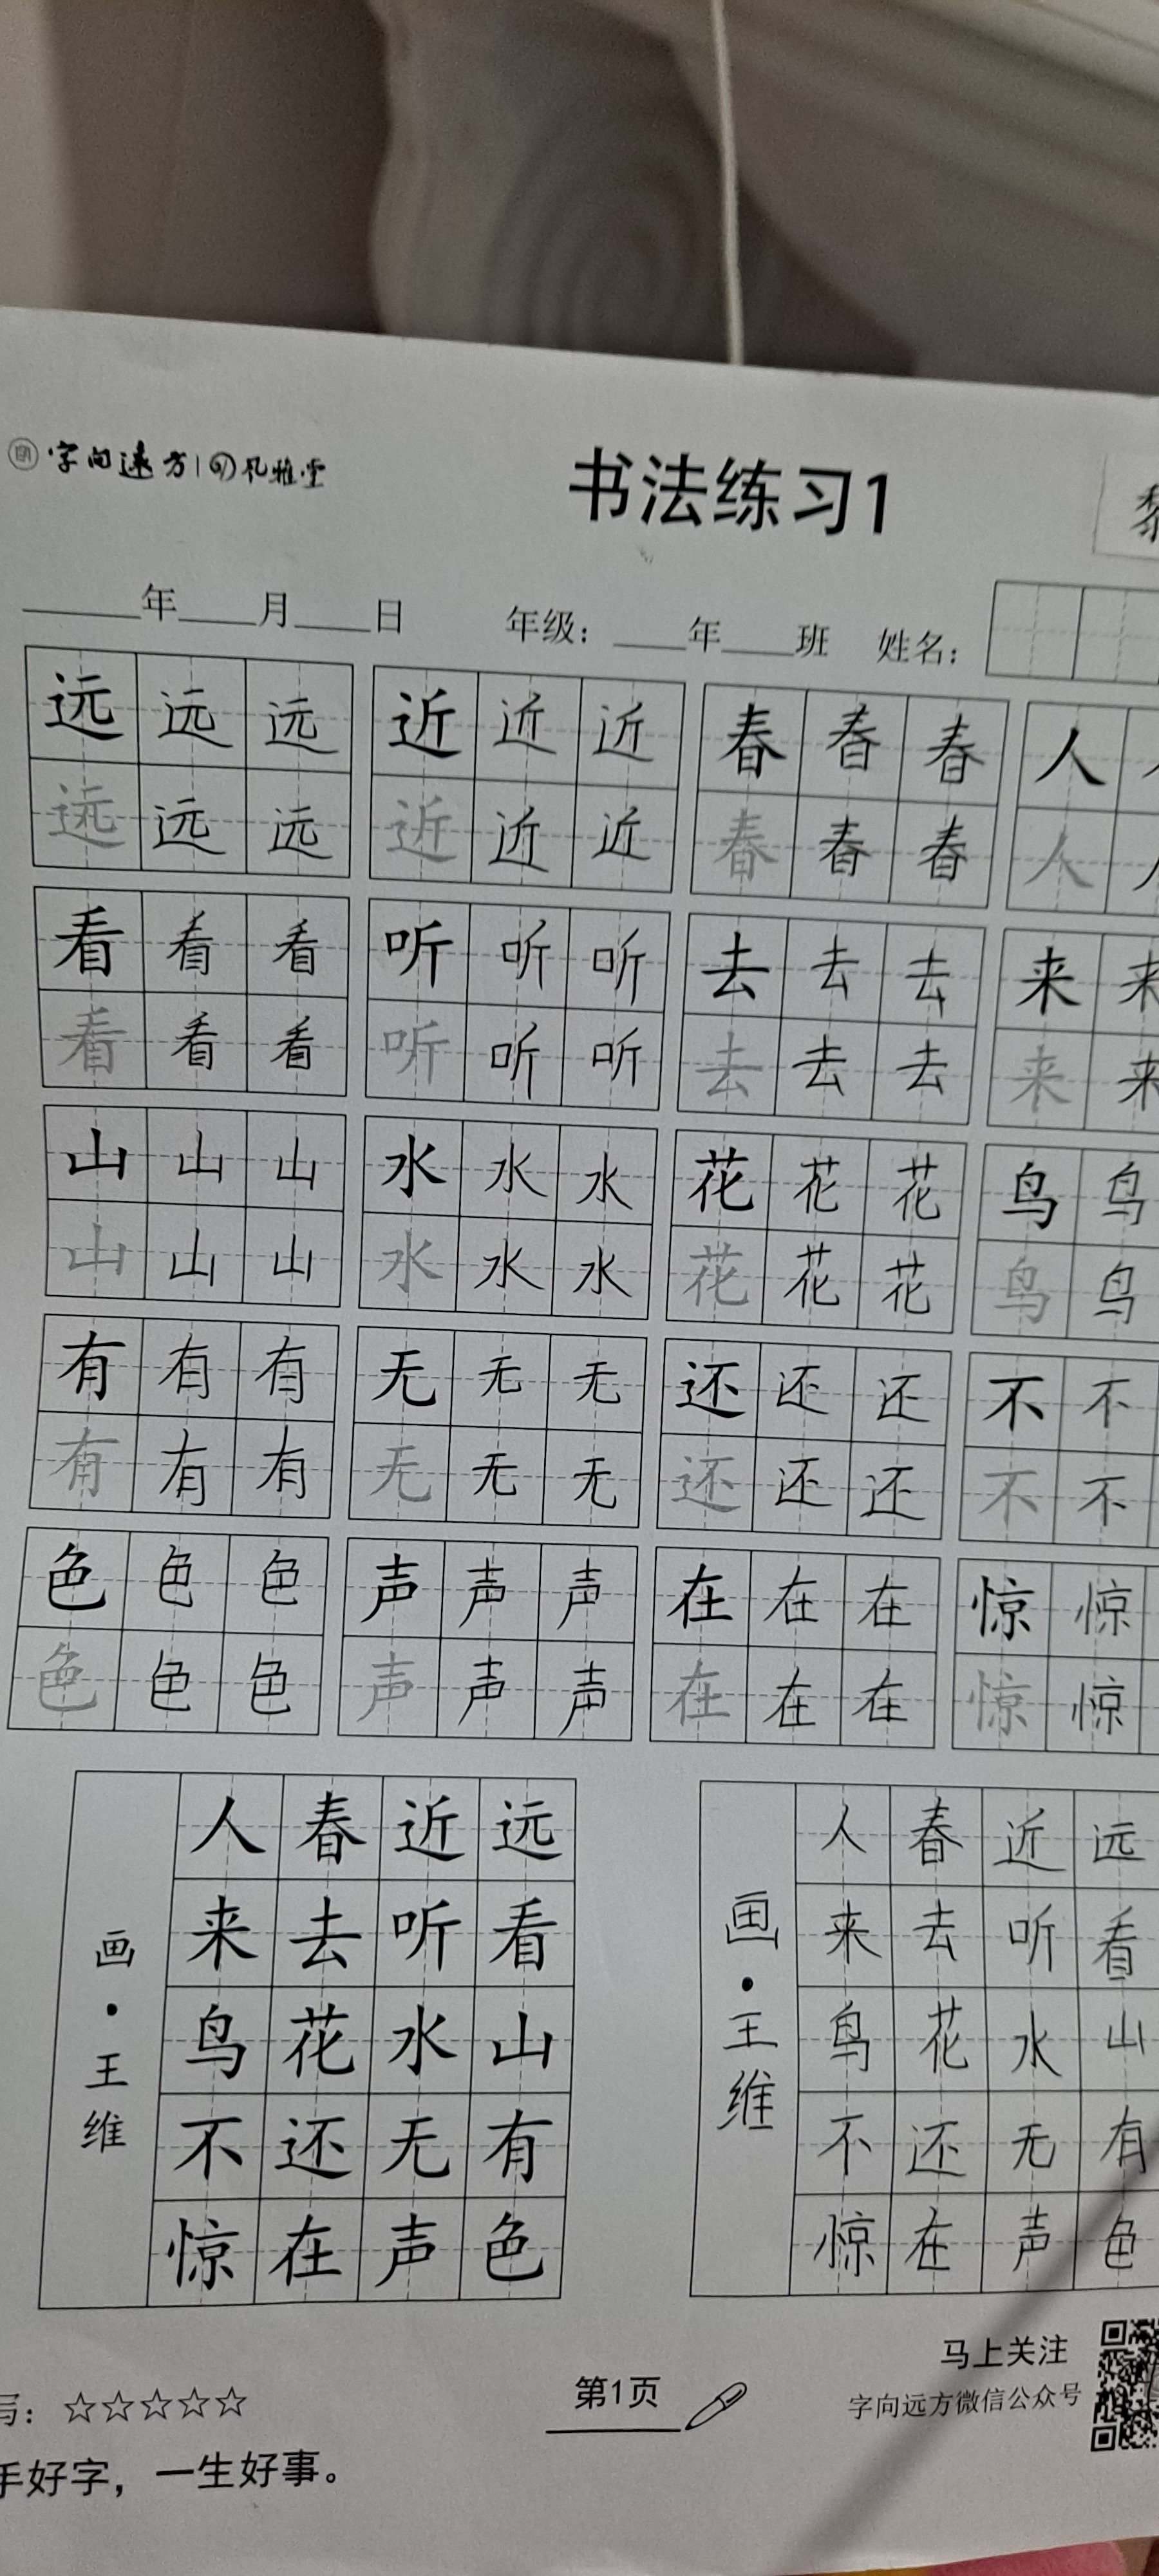 字向远方 | 风雅堂
书法练习1
年 月 日 年级： 年 班 姓名：
远 远 远 近 近 近 春 春 春 人
远 远 远 近 近 近 春 春 春 人
看 看 看 听 听 听 去 去 去 来 来
看 看 看 听 听 听 去 去 去 来 来
山 山 山 水 水 水 花 花 花 鸟 鸟
山 山 山 水 水 水 花 花 花 鸟 鸟
有 有 有 无 无 无 还 还 还 不 不
有 有 有 无 无 无 还 还 还 不 不
色 色 色 声 声 声 在 在 在 惊 惊
色 色 色 声 声 声 在 在 在 惊 惊
远看山有色
近听水无声
春去花还在
人来鸟不惊
画·王维
远看山有色
近听水无声
春去花还在
人来鸟不惊
画·王维
马上关注
字向远方微信公众号
第1页
写：☆☆☆☆☆
手好字，一生好事。